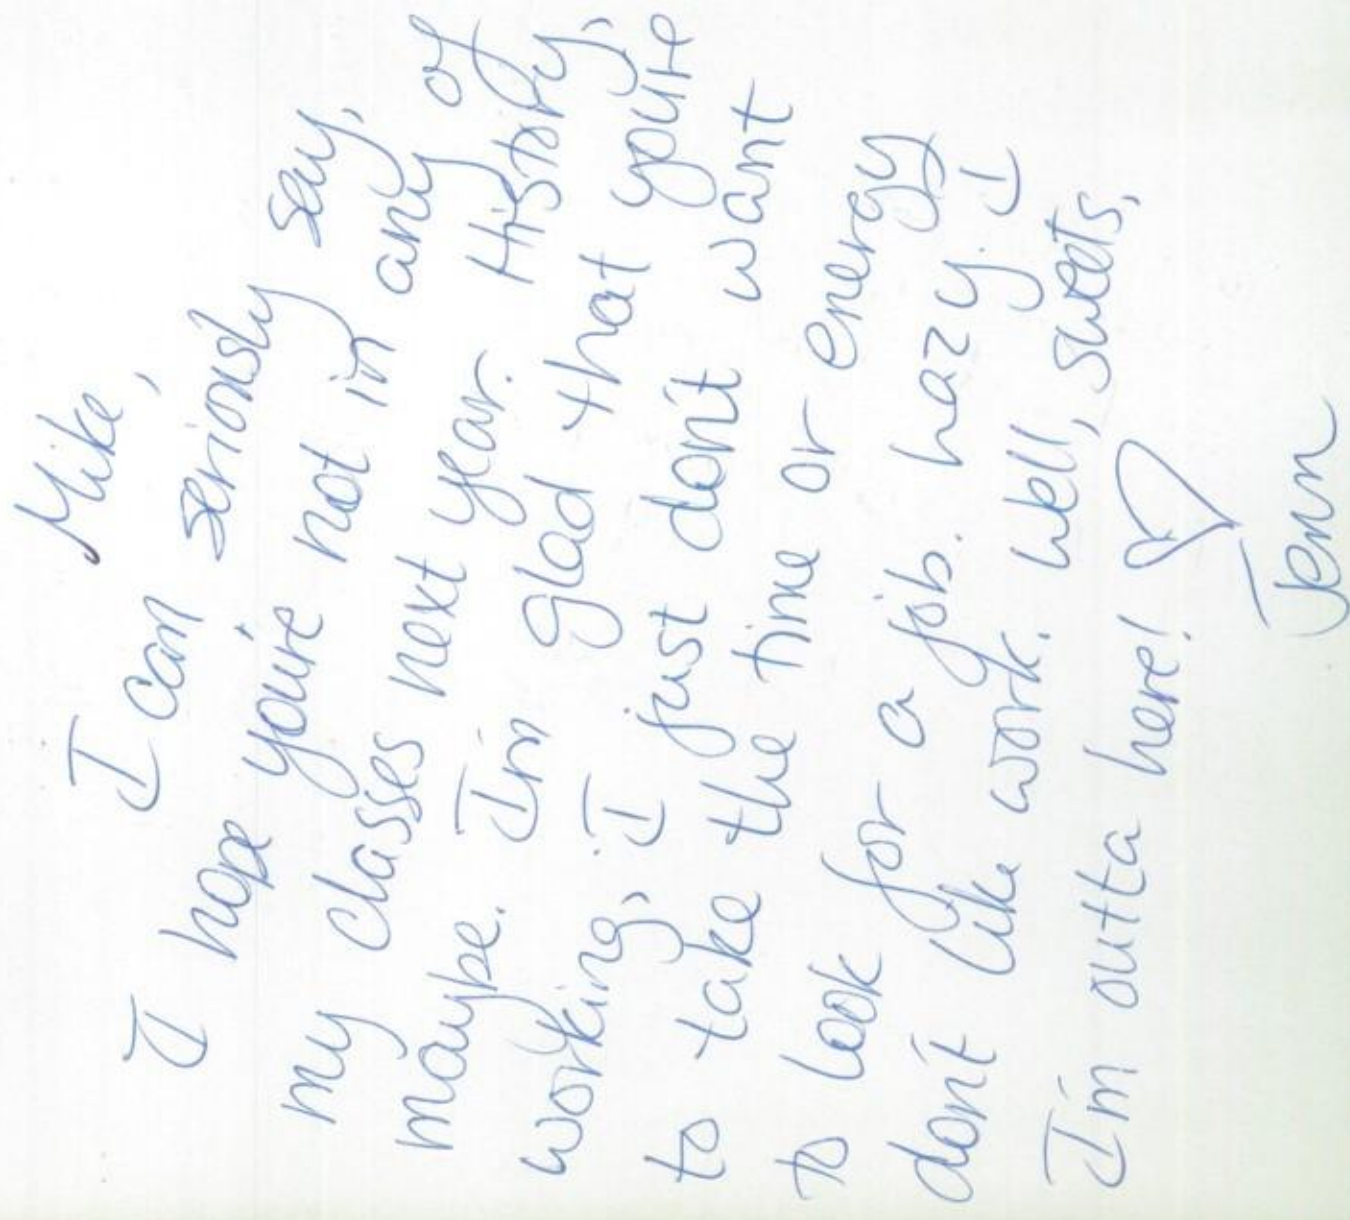 Mike,
I can seriously say,
I hope you're not in any of
my classes next year. History,
maybe. I'm glad that you're
working, I just don't want
to take the time or energy
to look for a job. hazy. I
don't like work. Well, sweets,
I'm outta here! ♡
Jenn